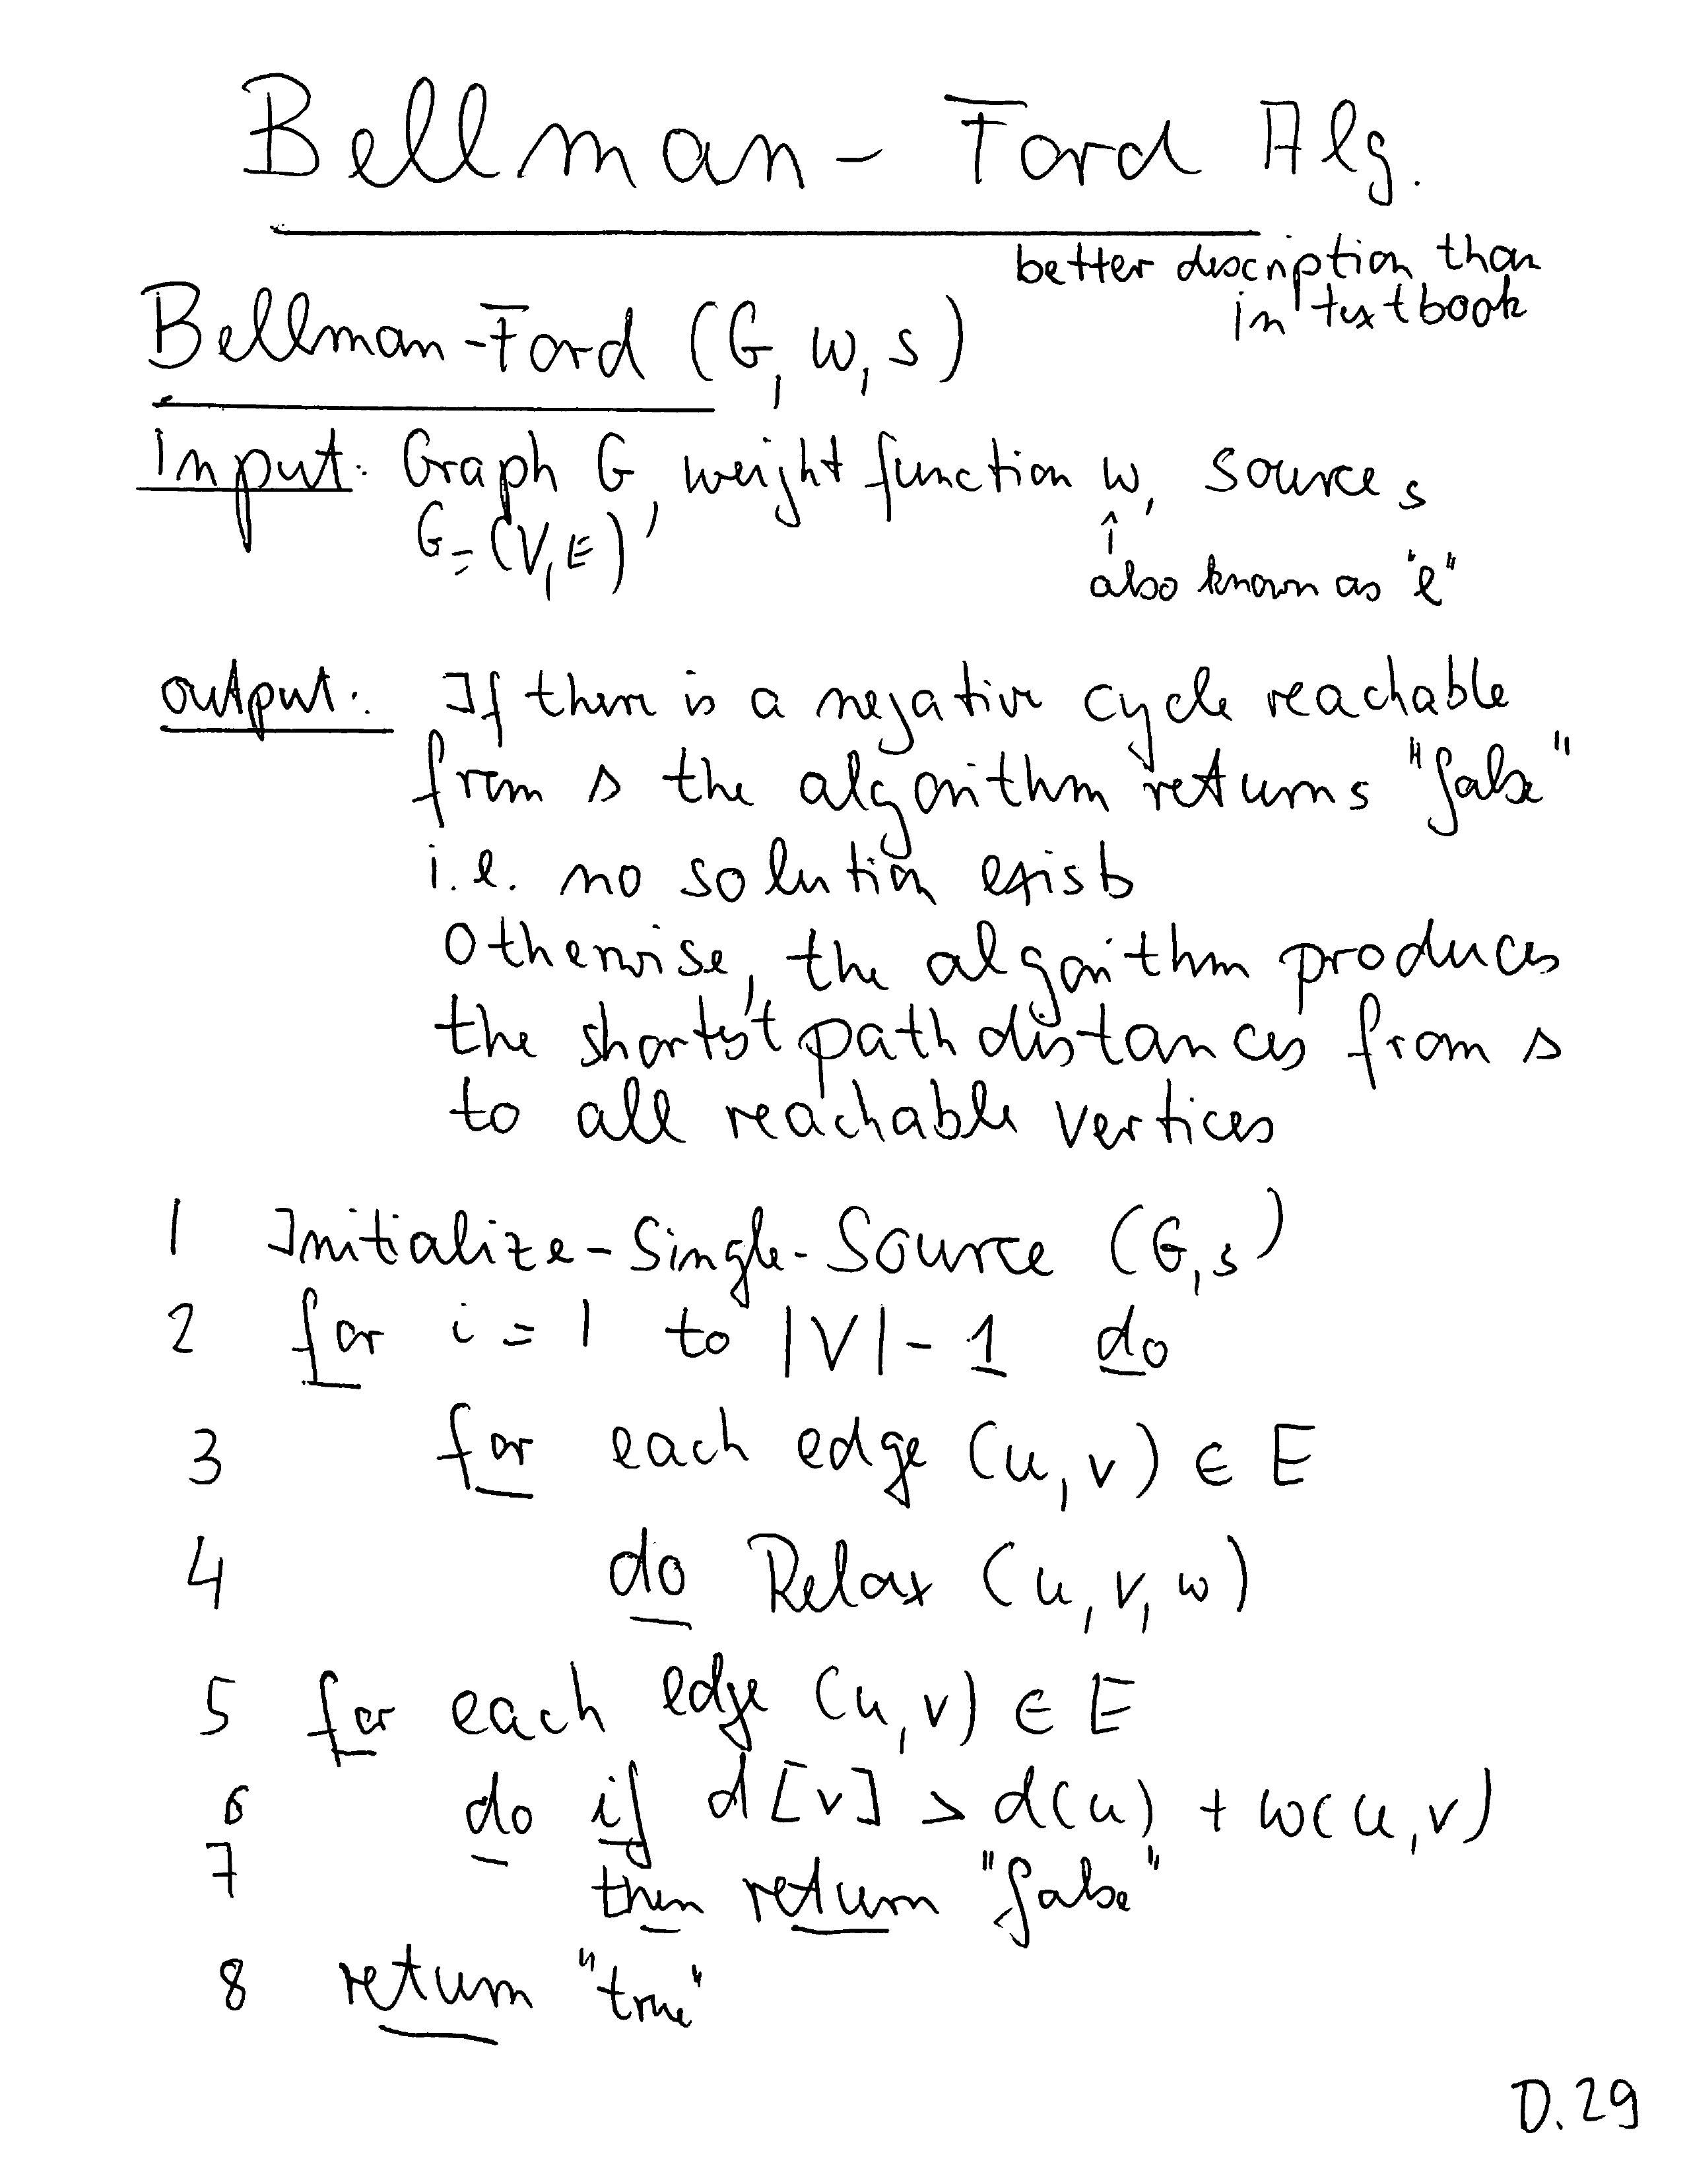 Bellman-Ford Alg.
better description than
in textbook
Bellman-Ford (G, w, s)
Input: Graph G, weight function w, source s
G=(V,E)
↑
also known as "l"
output: If there is a negative cycle reachable
from s the algorithm returns "false"
i.e. no solution exists
Otherwise, the algorithm produces
the shortest path distances from s
to all reachable vertices
1 Initialize-Single-Source (G,s)
2 for i = 1 to |V| - 1 do
3 for each edge (u,v) ∈ E
4 do Relax (u,v,w)
5 for each edge (u,v) ∈ E
6 do if d[v] > d(u) + w(u,v)
7 then return "false"
8 return "true"
D.29